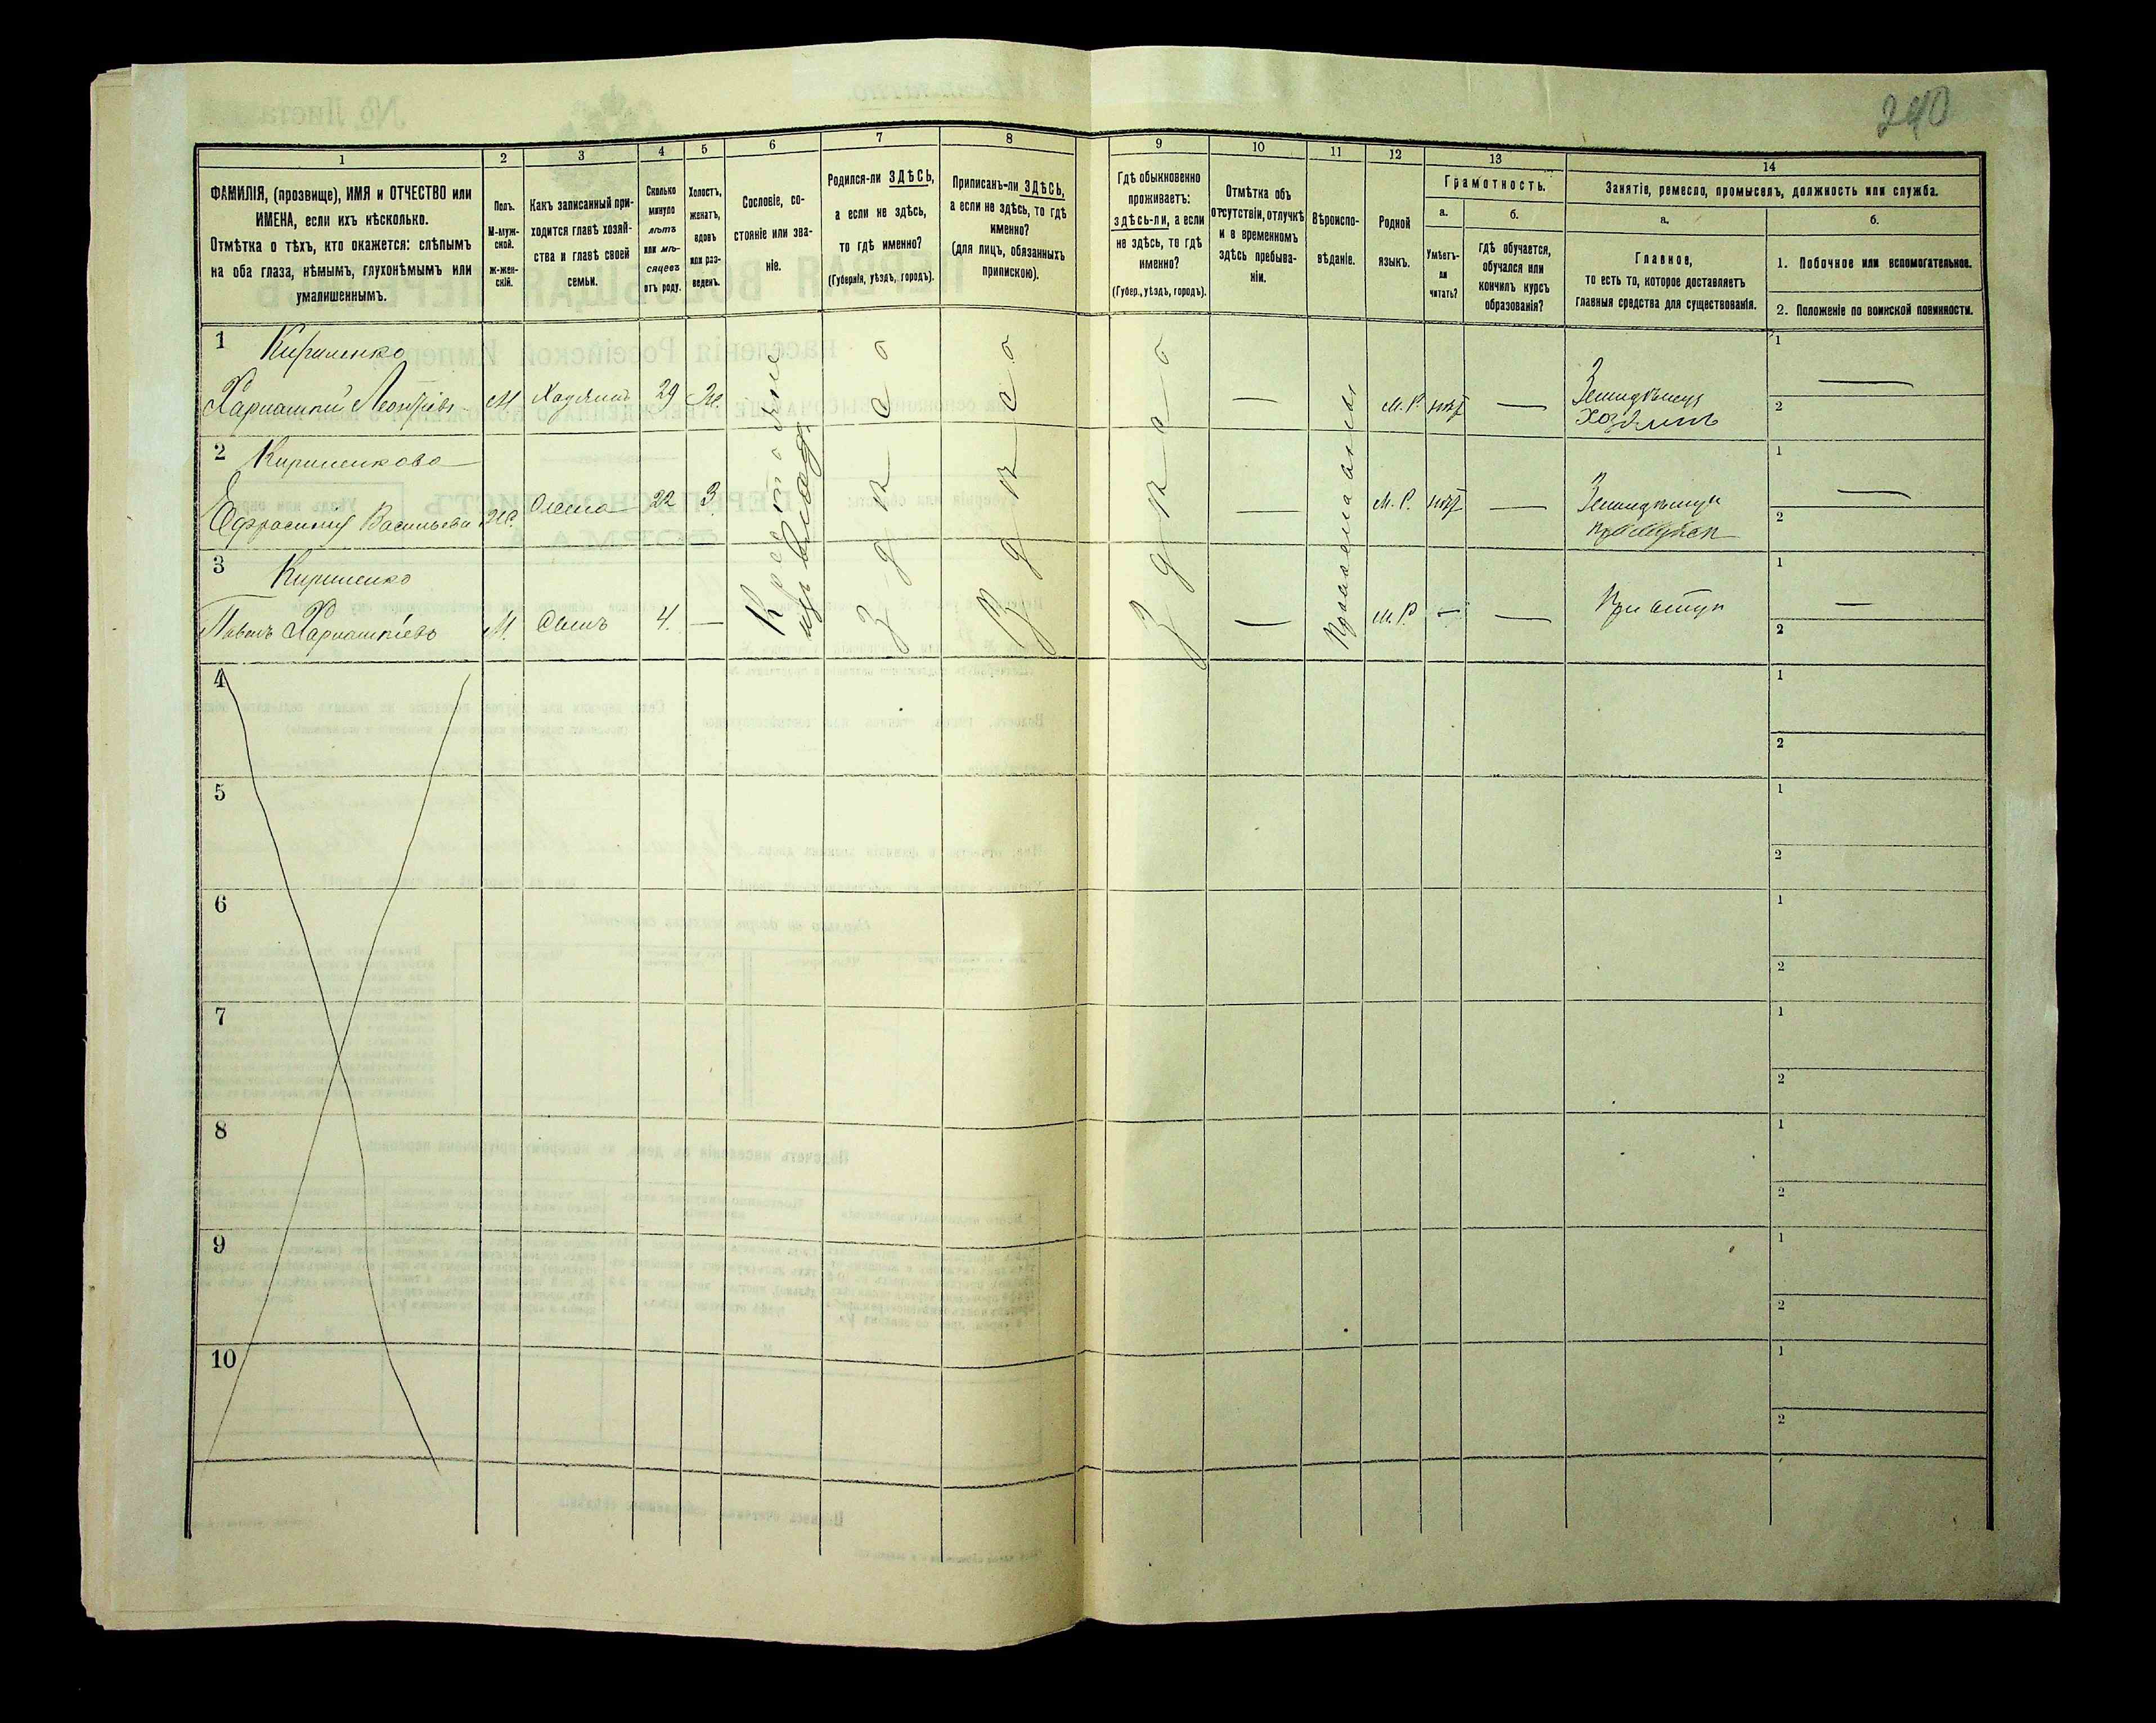 240
1
2
3
4
5
6
7
8
9
10
11
12
13
14
ФАМИЛІЯ, (прозвище), ИМЯ и ОТЧЕСТВО или
ИМЕНА, если ихъ нѣсколько.
Отмѣтка о тѣхъ, кто окажется: слѣпымъ
на оба глаза, нѣмымъ, глухонѣмымъ или
умалишеннымъ.
Полъ.
М-муж-
ской.
ж-жен-
скій.
Какъ записанный при-
ходится главѣ хозяй-
ства и главѣ своей
семьи.
Сколько
минуло
лѣтъ
или мѣ-
сяцевъ
отъ роду.
Холостъ,
женатъ,
вдовъ
или раз-
веденъ.
Сословіе, со-
стояніе или зва-
ніе.
Родился-ли ЗДѢСЬ,
а если не здѣсь,
то гдѣ именно?
(Губернія, уѣздъ, городъ).
Приписанъ-ли ЗДѢСЬ,
а если не здѣсь, то гдѣ
именно?
(для лицъ, обязанныхъ
припискою).
Гдѣ обыкновенно
проживаетъ:
здѣсь-ли, а если
не здѣсь, то гдѣ
именно?
(Губер., уѣздъ, городъ).
Отмѣтка объ
отсутствіи, отлучкѣ
и о временномъ
здѣсь пребыва-
ніи.
Вѣроиспо-
вѣданіе.
Родной
языкъ.
Грамотность.
а.
Умѣетъ-
ли
читать?
б.
гдѣ обучается,
обучался или
кончилъ курсъ
образованія?
Занятіе, ремесло, промыселъ, должность или служба.
а.
Главное,
то есть то, которое доставляетъ
главныя средства для существованія.
б.
1. Побочное или вспомогательное.
2. Положеніе по воинской повинности.
1 Кириленко
Харлампій Леонтіевъ М Хазяинъ 29 Ж. — М.Р. нѣт — Земледѣлецъ
Хозяинъ
1 —
2
2 Кириленкова
Ефросинія Васильева Ж. 22 З. — М.Р. нѣт —
1 —
2
3 Кириленко
Павелъ Харлампіевъ М. Сынъ 4. — — М.Р. — —
1 —
2
Крестьяне
изъ владѣ.
Здѣсь
Здѣсь
Здѣсь
Православные
4 1
2
5 1
2
6 1
2
7 1
2
8 1
2
9 1
2
10 1
2